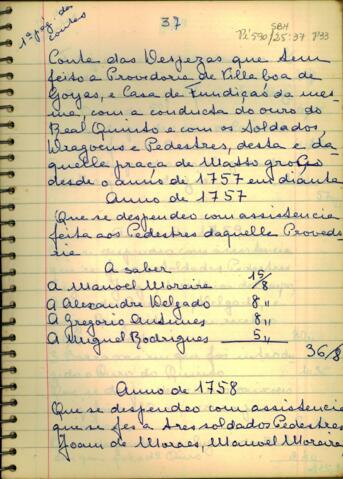 1ª pág. de contas
37
SBH
Pi 590/25:37 P33
Conta das Despezas que tem
feito a Provedoria de Villa boa de
Goyas, e Casa de Fundição da mes-
ma, com a conducta do ouro do
Real Quinto e com os Soldados,
Dragoens e Pedestres, desta e da
quella praça de Matto groço
desde o anno de 1757 em diante
Anno de 1757
Que se despendeo com assistencia
feita aos Pedestres daquelle Provedo-
rie
A saber
A Manoel Moreira 15/8
A Alexandre Delgado 8 "
A Gregorio Antunes 8 "
A Miguel Rodrigues 5 "
36/8
Anno de 1758
Que se despendeo com assistencia
que se fes a tres soldados Pedestres
Joam de Moraes, Manoel Moreira